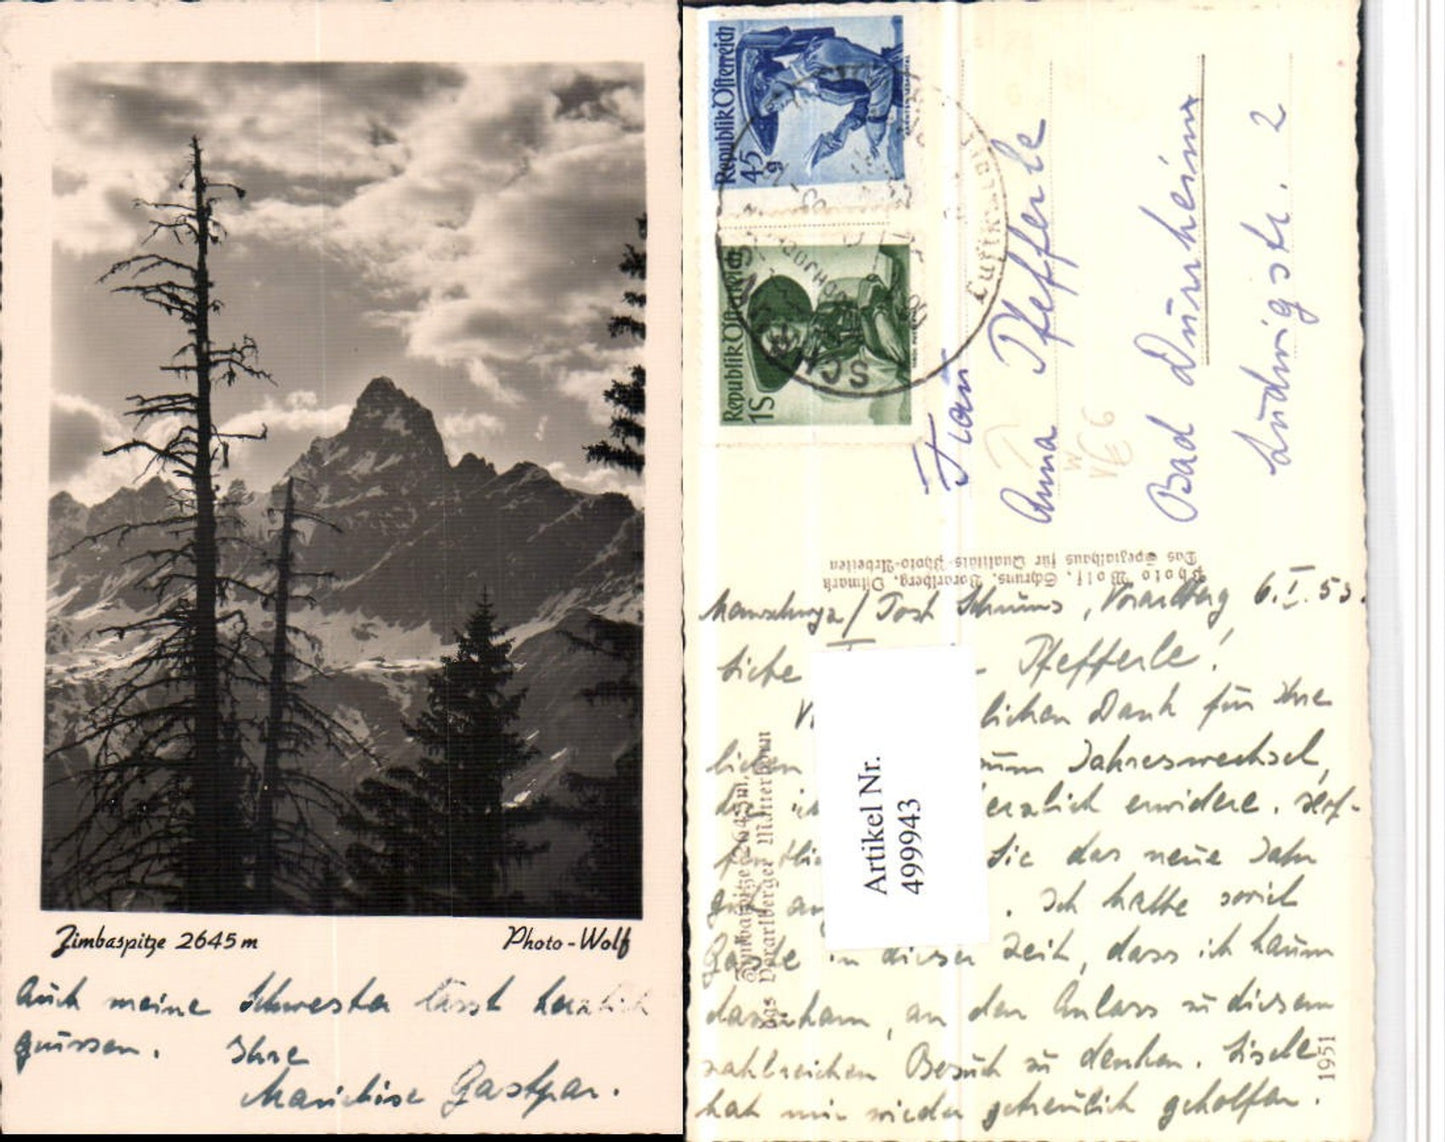 Zimbaspitze 2645 m
Photo-Wolf
Auch meine Schwester lässt herzlich
grüssen. Ihre
Gastpar.
Republik Österreich
45 g
Republik Österreich
1 S
SCH
Luftkurort
Frau
Anna Pfefferle
Bad Dürrheim
Ludwigstr. 2
Photo Wolf, Schruns, Vorarlberg, Ostmark
Das Spezialhaus für Qualitäts-Photo-Arbeiten
/ Post Schruns, Vorarlberg 6. I. 53.
Liebe Pfefferle!
lichen Dank für Ihre
lieben zum Jahreswechsel,
erwidere. Hof-
Sie das neue Jahr
. Ich hatte soviel
Gäste in dieser Zeit, dass ich kaum
dazu kam, an den Anlass zu diesem
zahlreichen Besuch zu denken. Lisele
hat mir wieder getreulich geholfen.
Zimbaspitze 2645 m,
das Vorarlberger Matterhorn
1951
Artikel Nr.
499943